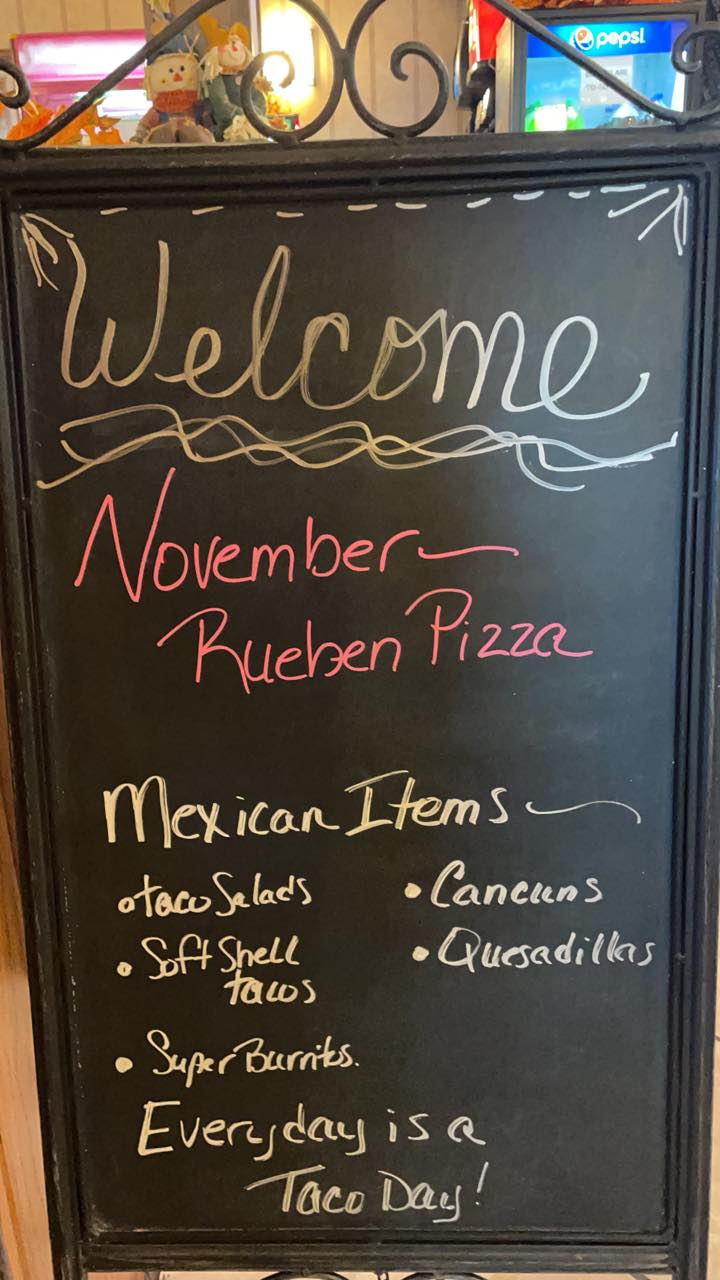 pepsi
Welcome
November
Rueben Pizza
Mexican Items
taco Salads
• Cancuns
• Soft Shell
tacos
• Quesadillas
• Super Burritos.
Everyday is a
Taco Day!